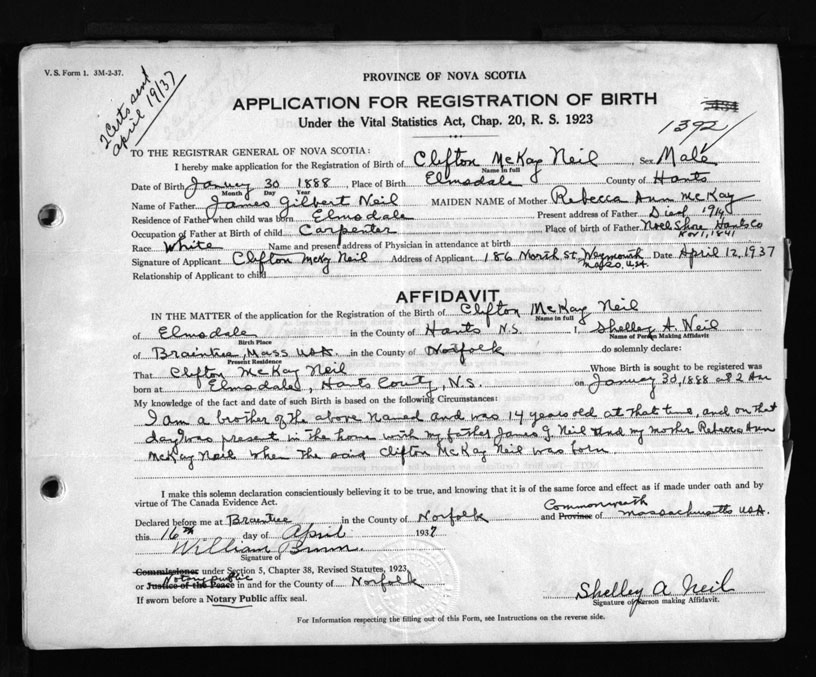 V. S. Form 1. 3M-2-37.
2 Certs send
April 19/37
PROVINCE OF NOVA SCOTIA
APPLICATION FOR REGISTRATION OF BIRTH
Under the Vital Statistics Act, Chap. 20, R. S. 1923
1392
TO THE REGISTRAR GENERAL OF NOVA SCOTIA:
I hereby make application for the Registration of Birth of Clifton McKay Neil Sex Male
Name in full
Date of Birth January 30 1888, Place of Birth Elmsdale County of Hants
Month Day Year
Name of Father James Gilbert Neil MAIDEN NAME of Mother Rebecca Ann McKay
Residence of Father when child was born Elmsdale Present address of Father Died 1914
Occupation of Father at Birth of child Carpenter Place of birth of Father Noel Shore Hants Co
Nov 1, 1841
Race White Name and present address of Physician in attendance at birth
Signature of Applicant Clifton McKy Neil Address of Applicant 186 North St, Weymouth Date April 12, 1937
Mass. U.S.A.
Relationship of Applicant to child
AFFIDAVIT
IN THE MATTER of the application for the Registration of the Birth of Clifton McKay Neil
Name in full
of Elmsdale in the County of Hants N.S. I, Shelley A. Neil
Birth Place Name of Person Making Affidavit
of Braintree, Mass USA. in the County of Norfolk do solemnly declare:
Present Residence
That Clifton McKay Neil Whose Birth is sought to be registered was
born at Elmsdale, Hants County, N.S. on January 30, 1888 at 2 Am
My knowledge of the fact and date of such Birth is based on the following Circumstances:
I am a brother of the above named and was 14 years old at that time, and on that
day was present in the home with my father James G Neil and my mother Rebecca Ann
McKay Neil when the said Clifton McKay Neil was born.
I make this solemn declaration conscientiously believing it to be true, and knowing that it is of the same force and effect as if made under oath and by
virtue of The Canada Evidence Act.
Commonwealth
Declared before me at Braintree in the County of Norfolk and Province of Massachusetts USA.
this 16th day of April 1937
William
Signature of
Commissioner under Section 5, Chapter 38, Revised Statutes, 1923
Notary public
or Justice of the Peace in and for the County of Norfolk
If sworn before a Notary Public affix seal.
Shelley A Neil
Signature of person making Affidavit.
For Information respecting the filling out of this Form, see Instructions on the reverse side.